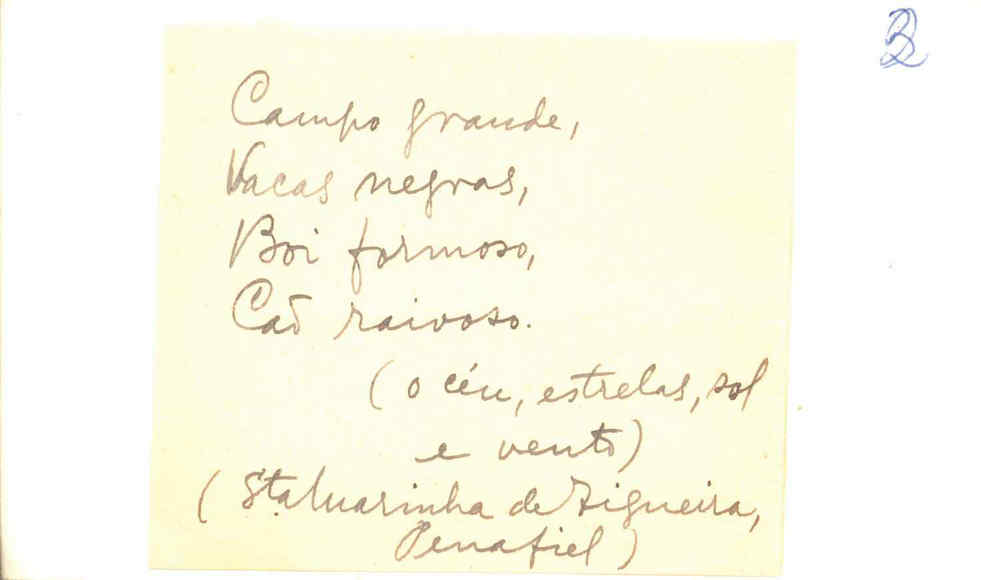 Campo grande,
Vacas negras,
Boi formoso,
Caõ raivoso.
(o céu, estrelas, sol
e vento)
(Sta. Marinha de Figueira,
Penafiel)